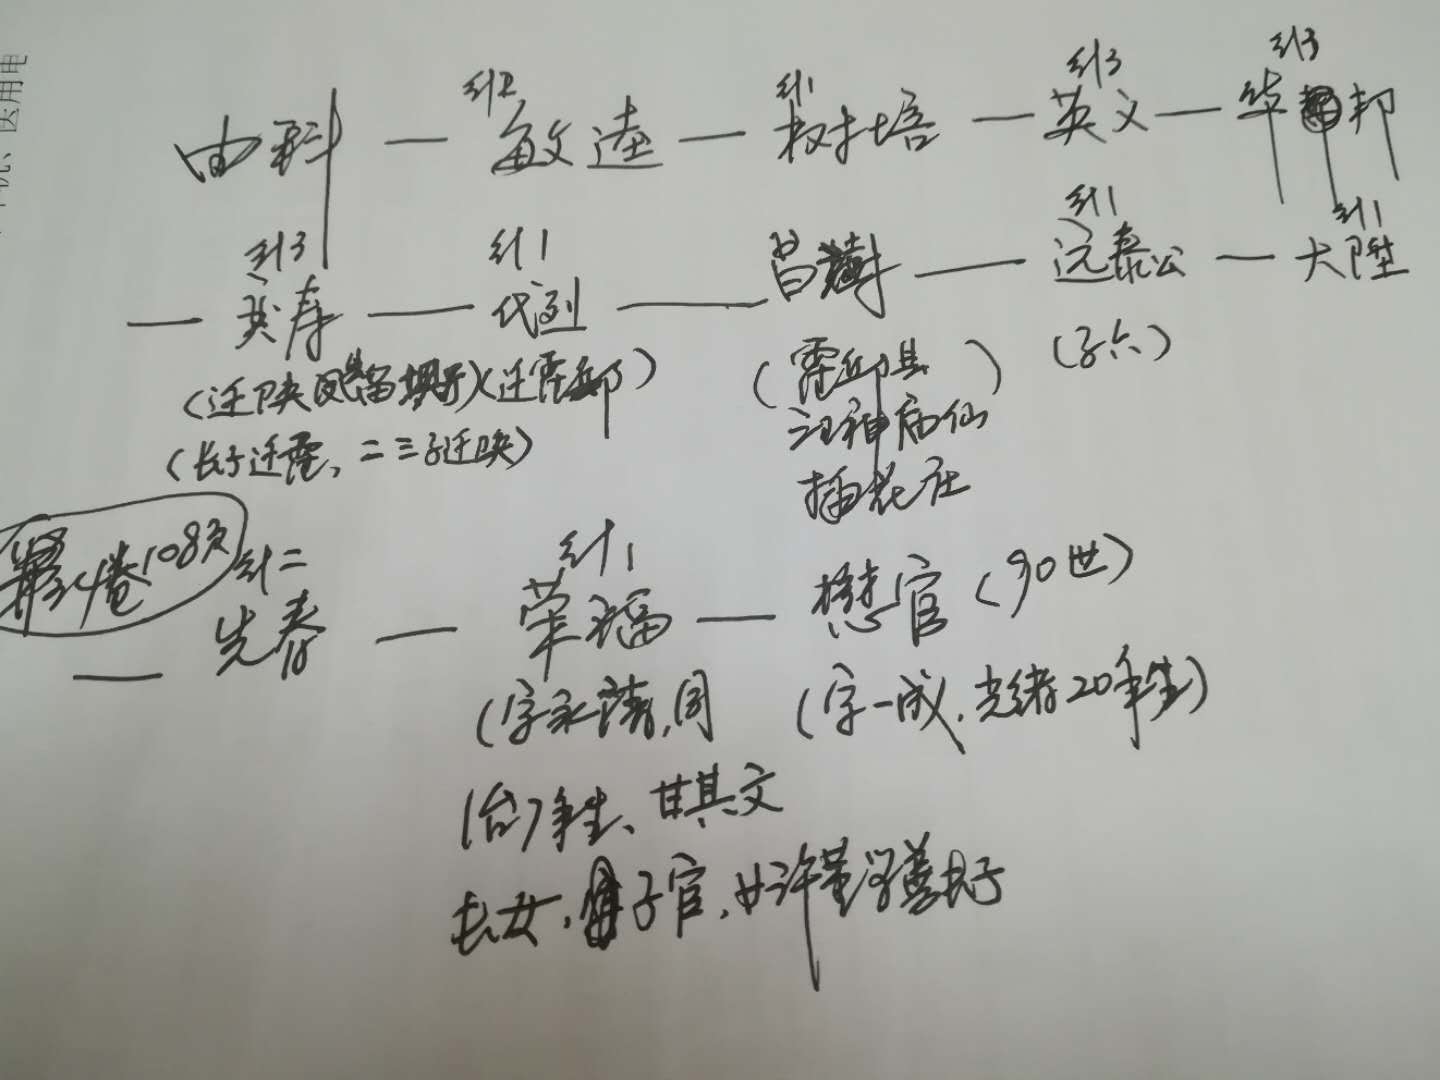 纠2 纠1 纠3 纠3
由科 — 敏逵 — 树培 — 英文 — 华邦
纠3 纠1 纠1 纠1
— 英寿 — 代列 — 昌澍 — 远泰公 — 大陞
(迁陕凤留坝子)(迁霍邱) (霍邱县) (子六)
(长子迁霍、二三子迁陕) 神庙仙
插花庄
卷108页 纠二 纠1
— 先春 — 荣福 — 懋官 (90世)
(字永清,同 (字一成.光绪20年生)
(治)7年生、甘其文
长女,子官,女许董学善长子